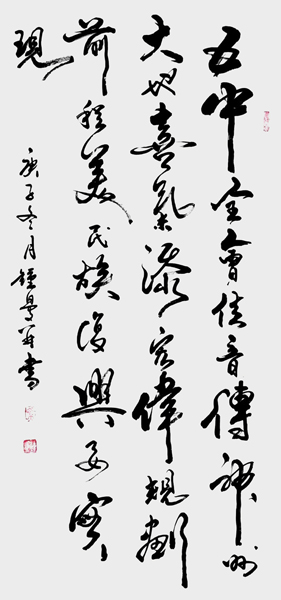 五中全會佳音傳神州
大地喜氣添宏偉規劃
前程美民族復興要實
現
庚子冬月書